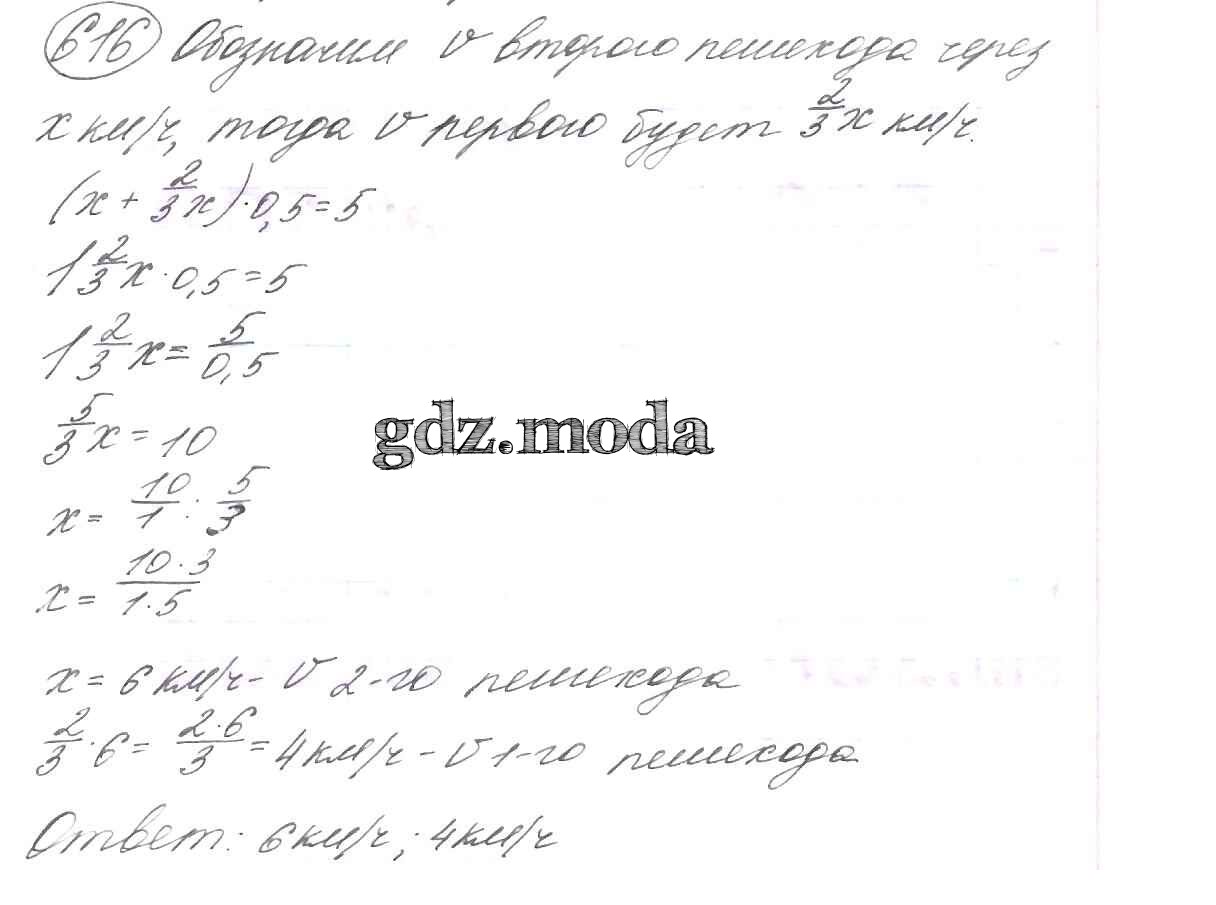 616 Обозначим v второго пешехода через
x км/ч, тогда v первого будет 2/3 x км/ч.
(x + 2/3 x) · 0,5 = 5
1 2/3 x · 0,5 = 5
1 2/3 x = 5/0,5
5/3 x = 10
gdz.moda
x = 10/1 : 5/3
x = 10·3/1·5
x = 6 км/ч - v 2-го пешехода
2/3 · 6 = 2·6/3 = 4 км/ч - v 1-го пешехода
Ответ: 6 км/ч; 4 км/ч